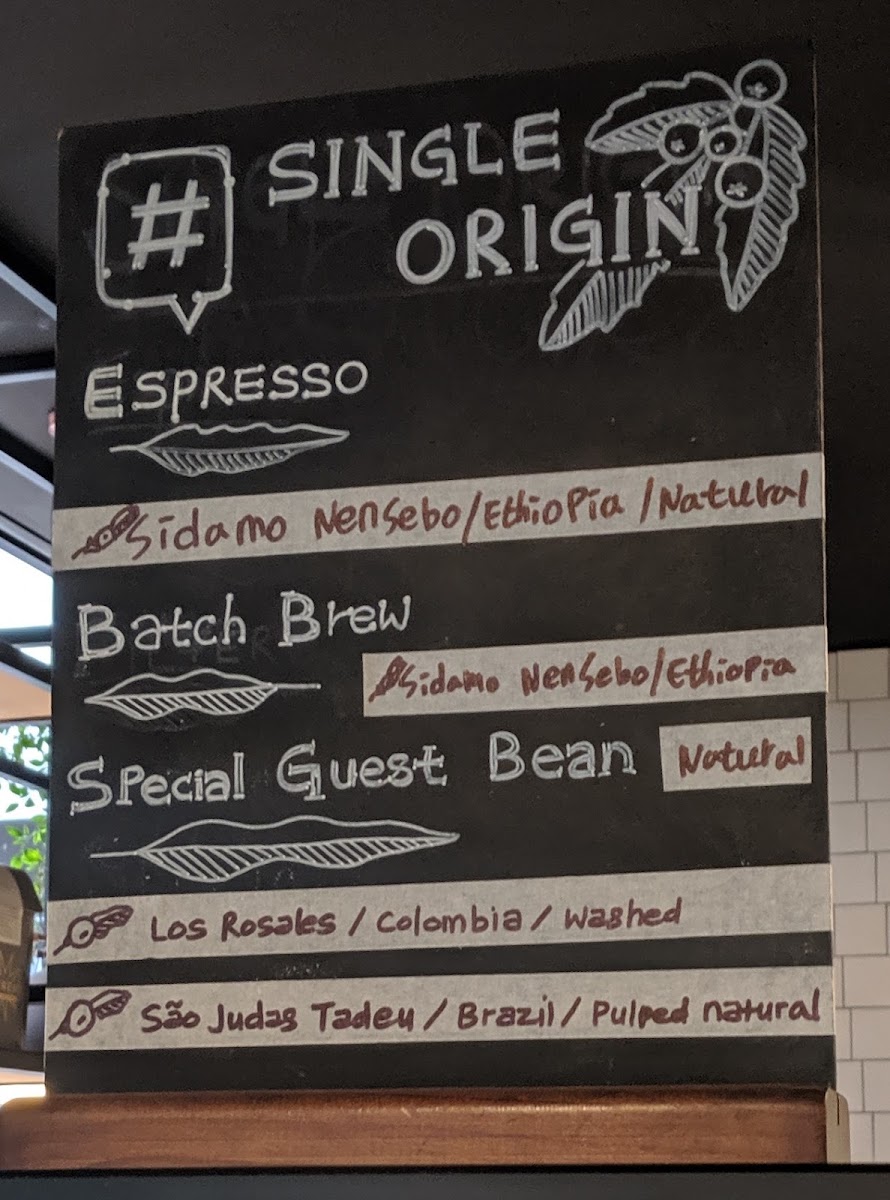 # SINGLE
ORIGIN
ESPRESSO
Sidamo Nensebo/Ethiopia/Natural
Batch Brew
Sidamo Nensebo/Ethiopia
Special Guest Bean
Natural
Los Rosales / Colombia / Washed
São Judas Tadeu / Brazil / Pulped natural